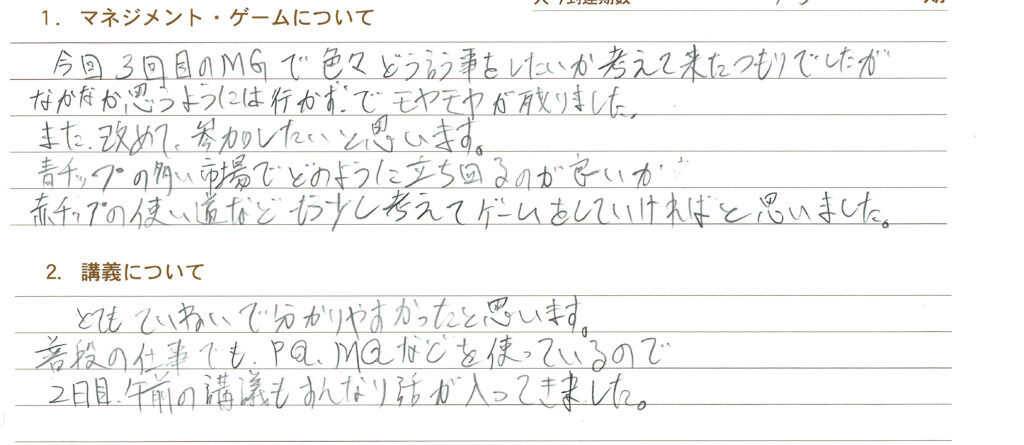 1. マネジメント・ゲームについて
今回3回目のMGで色々どう言う事をしたいか考えて来たつもりでしたが
なかなか思うようには行かず、でモヤモヤが残りました。
また、改めて、参加のしたいと思います。
青チップの多い市場でどのように立ち回るのが良いか
赤チップの使い道などもう少し考えてゲームをしていければと思いました。
2. 講義について
とてもていねいで分かりやすかったと思います。
普段の仕事でも、PQ、MQなどを使っているので
2日目、午前の講議もすんなり話が入ってきました。